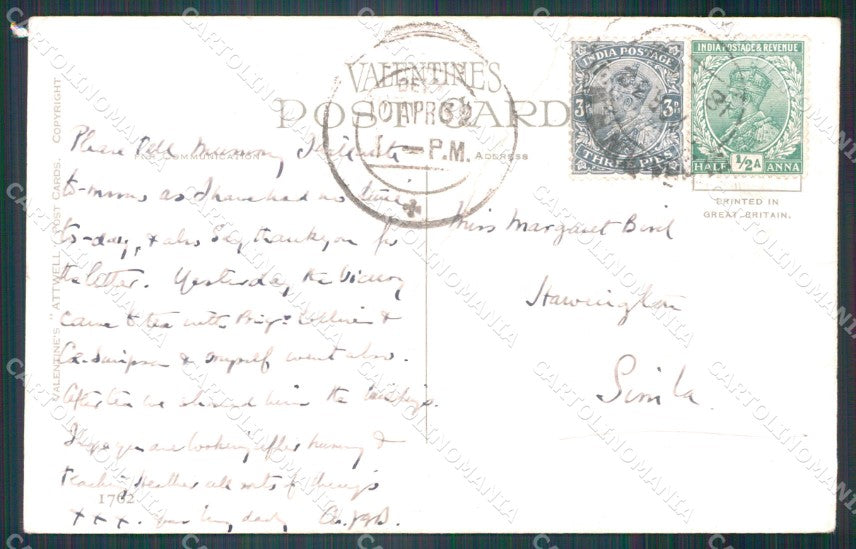 VALENTINE'S
POST CARD
FOR COMMUNICATION
ADDRESS
VALENTINE'S "ATTWELL" POST CARDS. COPYRIGHT
INDIA POSTAGE
3P 3P
THREE PIES
INDIA POSTAGE & REVENUE
½A
HALF ANNA
PRINTED IN
GREAT BRITAIN.
APR 32
P.M.
Please tell Mummy I'll write
to-morrow as I have had no time
to-day, & also say thank you for
the letter. Yesterday, the Viceroy
came to tea with Brig: Collins &
& myself went also.
After tea we showed him the
I hope you are looking after Mummy &
teaching Heather all sorts of things
x x x. Your loving daddy
1762
Miss Margaret Bird
Simla.
CARTOLINOMANIA